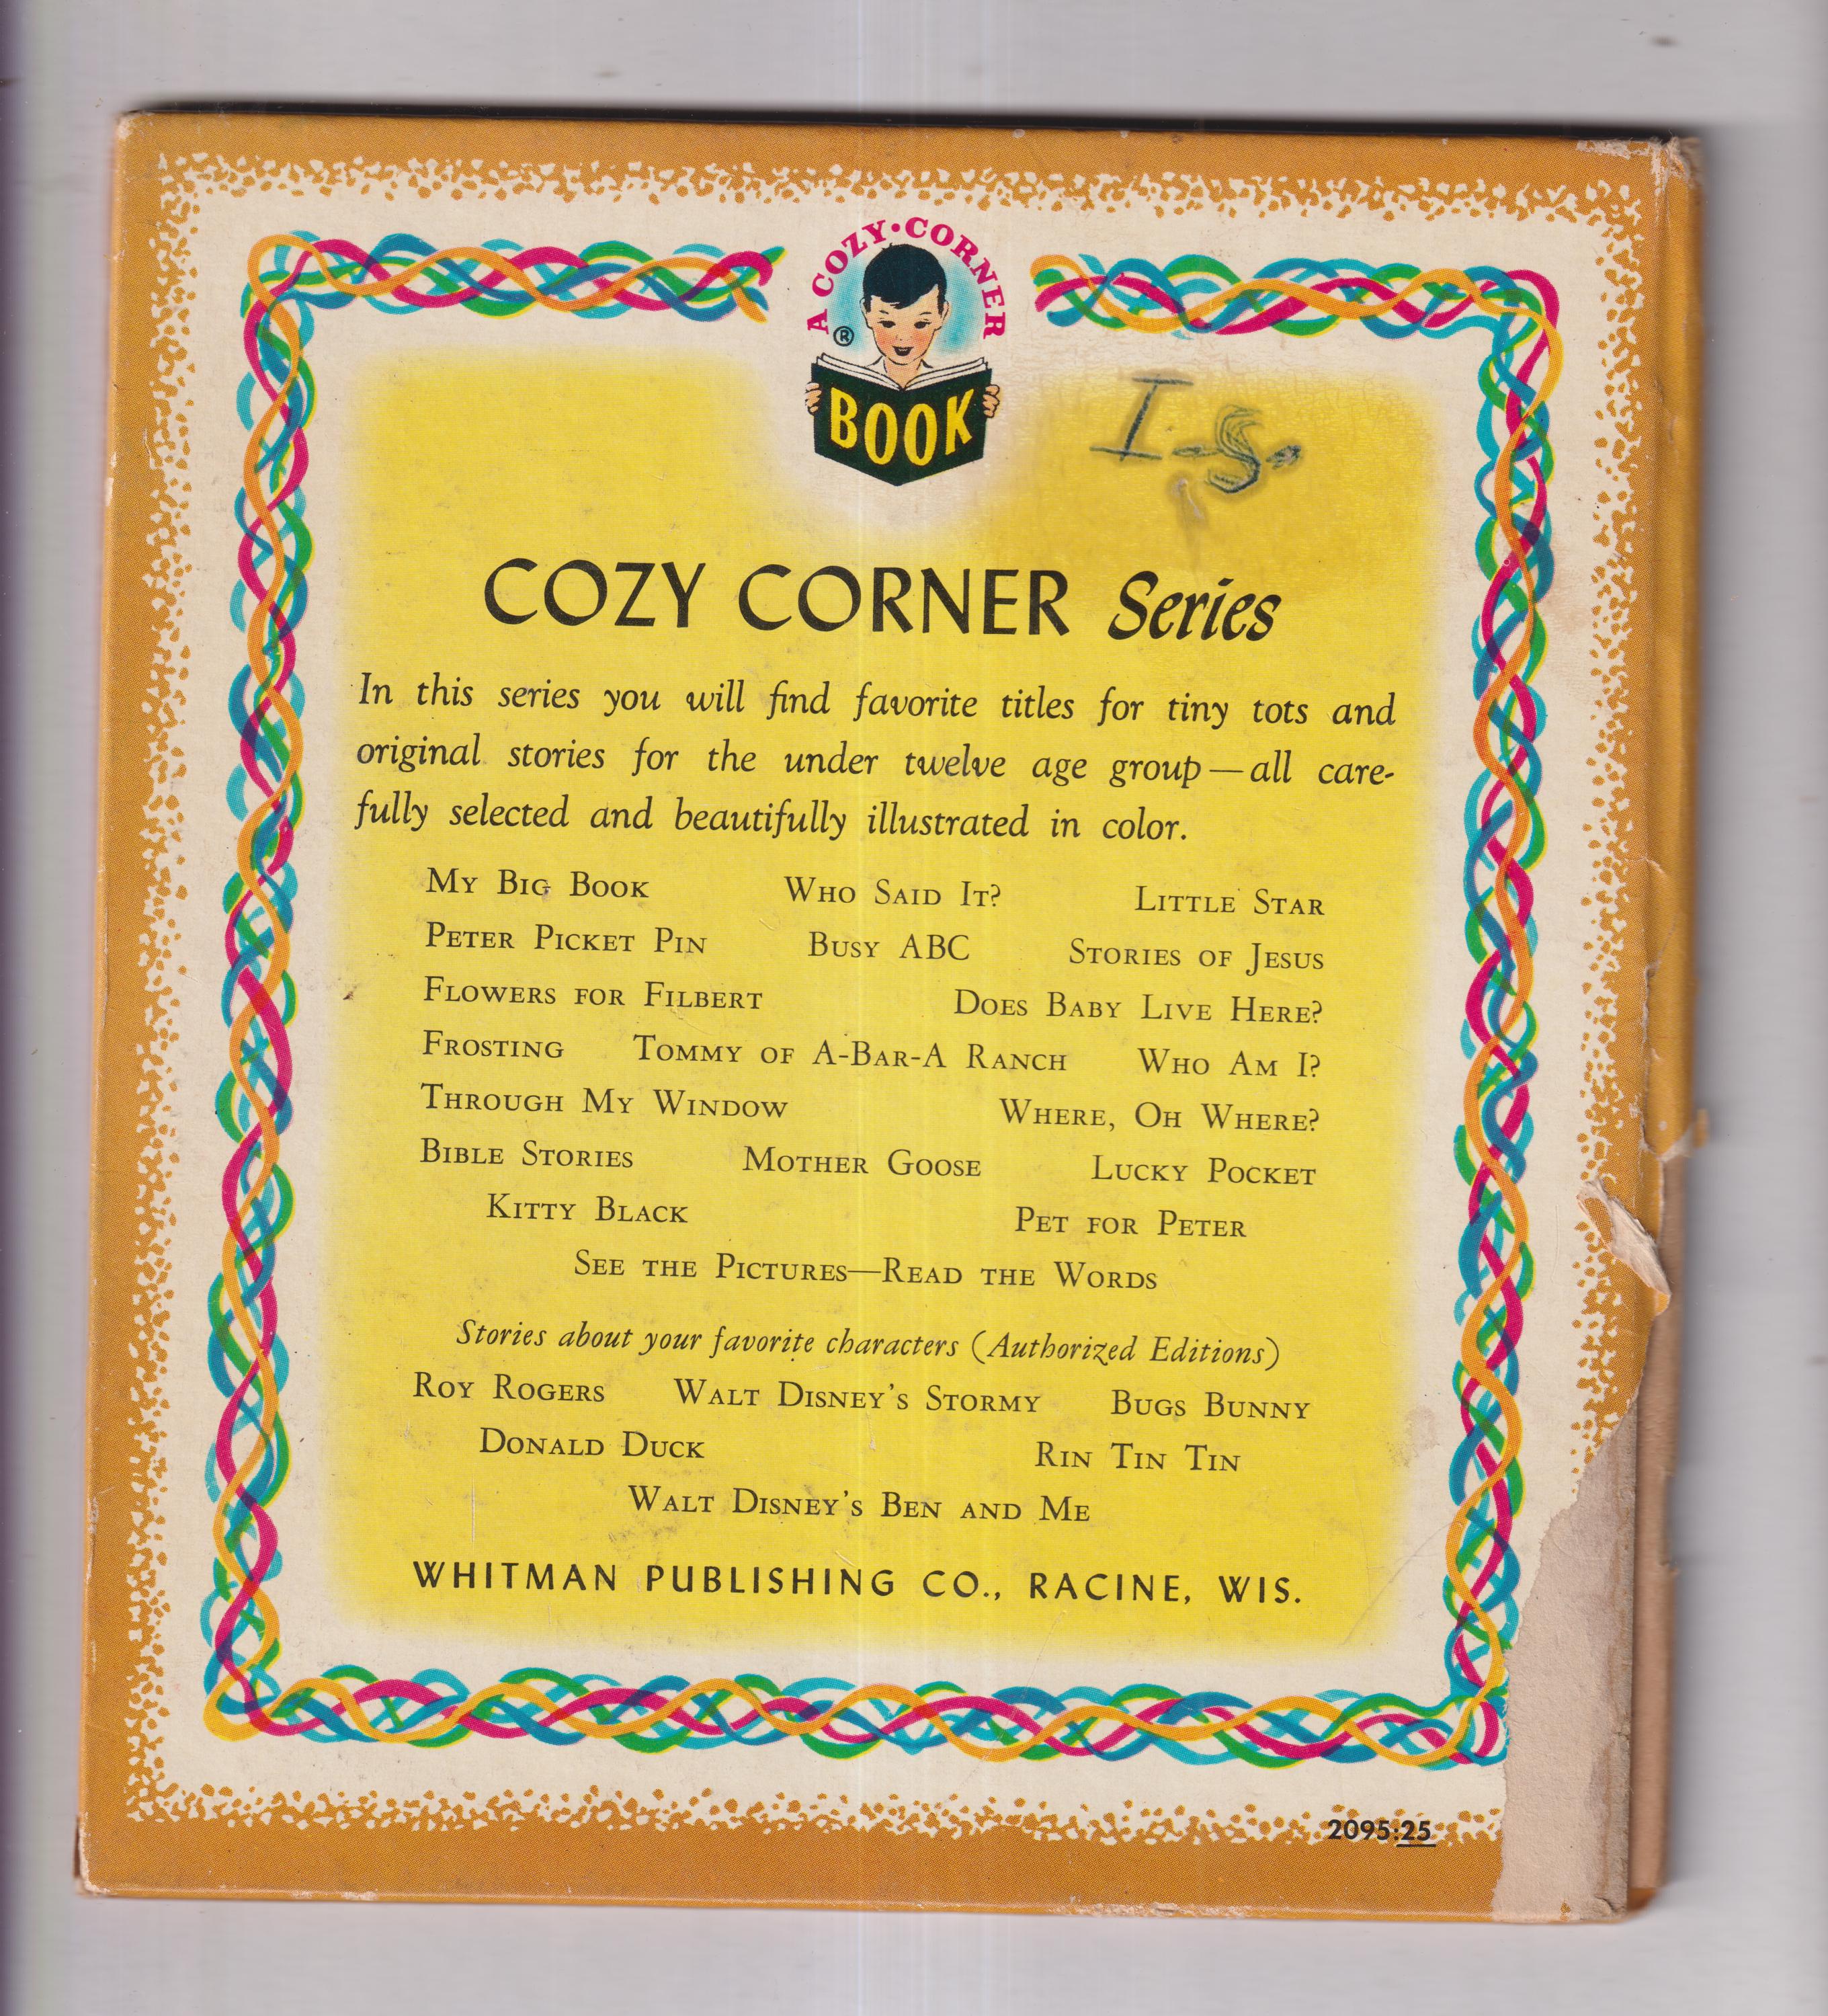 A COZY·CORNER
®
BOOK
I.S.
COZY CORNER Series
In this series you will find favorite titles for tiny tots and
original stories for the under twelve age group—all care-
fully selected and beautifully illustrated in color.
MY BIG BOOK WHO SAID IT? LITTLE STAR
PETER PICKET PIN BUSY ABC STORIES OF JESUS
FLOWERS FOR FILBERT DOES BABY LIVE HERE?
FROSTING TOMMY OF A-BAR-A RANCH WHO AM I?
THROUGH MY WINDOW WHERE, OH WHERE?
BIBLE STORIES MOTHER GOOSE LUCKY POCKET
KITTY BLACK PET FOR PETER
SEE THE PICTURES—READ THE WORDS
Stories about your favorite characters (Authorized Editions)
ROY ROGERS WALT DISNEY'S STORMY BUGS BUNNY
DONALD DUCK RIN TIN TIN
WALT DISNEY'S BEN AND ME
WHITMAN PUBLISHING CO., RACINE, WIS.
2095:25